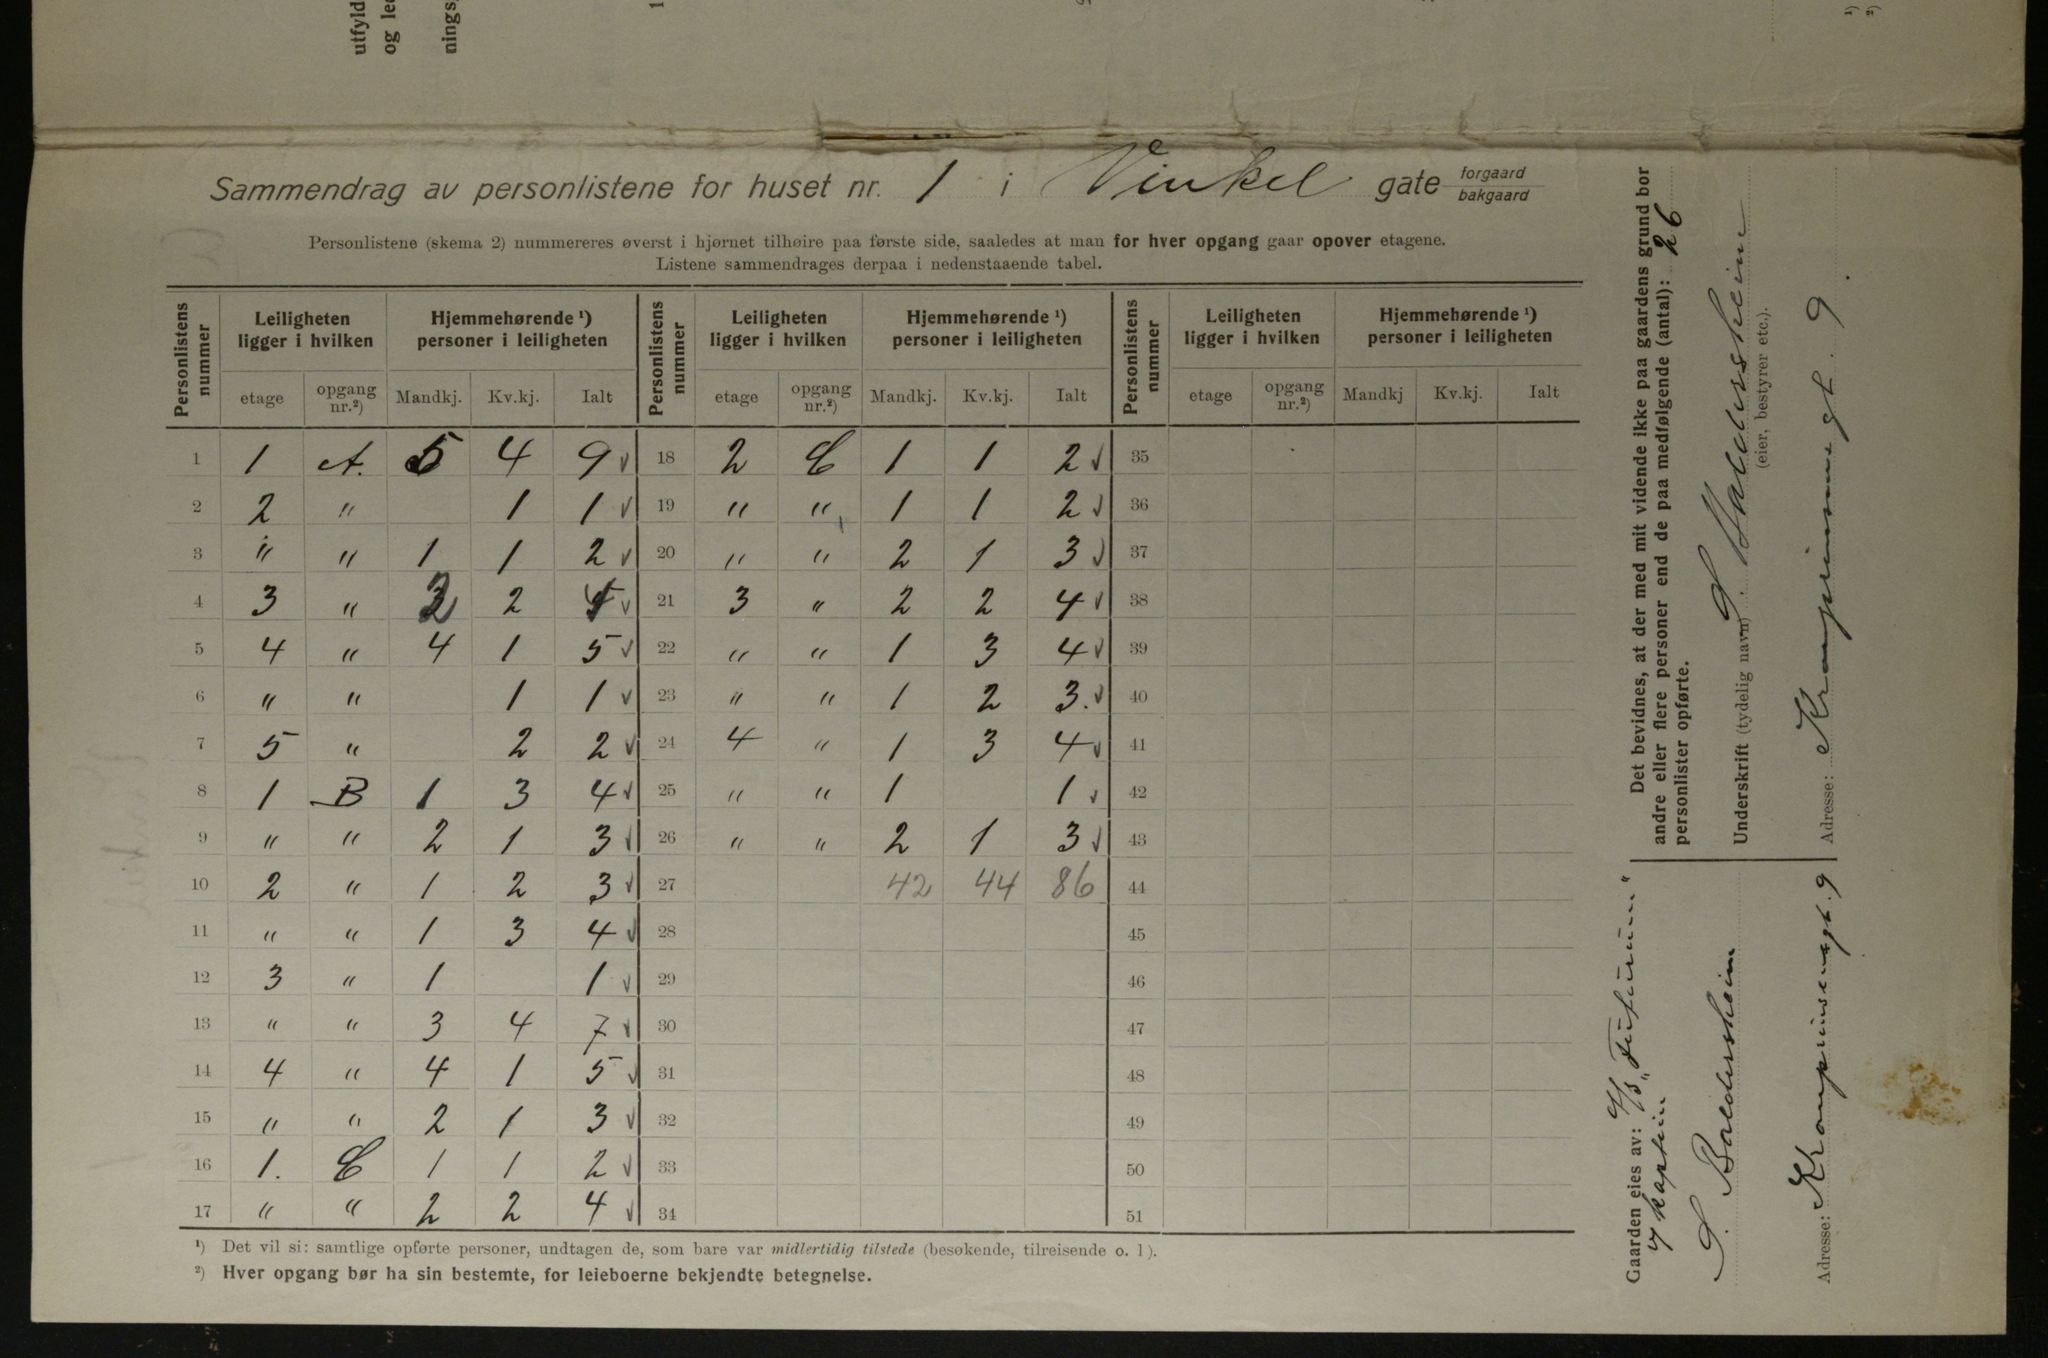 utfyld
og le
nings
1)
2)
Sammendrag av personlistene for huset nr. 1 i Vinkel gate forgaard
bakgaard
Personlistene (skema 2) nummereres øverst i hjørnet tilhøire paa første side, saaledes at man for hver opgang gaar opover etagene.
Listene sammendrages derpaa i nedenstaaende tabel.
Personlistens nummer | Leiligheten ligger i hvilken | Hjemmehørende ¹) personer i leiligheten | Personlistens nummer | Leiligheten ligger i hvilken | Hjemmehørende ¹) personer i leiligheten | Personlistens nummer | Leiligheten ligger i hvilken | Hjemmehørende ¹) personer i leiligheten
etage | opgang nr.²) | Mandkj. | Kv.kj. | Ialt | etage | opgang nr.²) | Mandkj. | Kv.kj. | Ialt | etage | opgang nr.²) | Mandkj | Kv.kj. | Ialt
1 1 A. 5 4 9 √ 18 2 C 1 1 2 √ 35
2 2 " 1 1 √ 19 " " 1 1 2 √ 36
3 " " 1 1 2 √ 20 " " 2 1 3 √ 37
4 3 " 2 2 4 √ 21 3 " 2 2 4 √ 38
5 4 " 4 1 5 √ 22 " " 1 3 4 √ 39
6 " " 1 1 √ 23 " " 1 2 3. √ 40
7 5 " 2 2 √ 24 4 " 1 3 4 √ 41
8 1 B 1 3 4 √ 25 " " 1 1 √ 42
9 " " 2 1 3 √ 26 " " 2 1 3 √ 43
10 2 " 1 2 3 √ 27 42 44 86 44
11 " " 1 3 4 √ 28 45
12 3 " 1 1 √ 29 46
13 " " 3 4 7 √ 30 47
14 4 " 4 1 5 √ 31 48
15 " " 2 1 3 √ 32 49
16 1. C 1 1 2 √ 33 50
17 " " 2 2 4 √ 34 51
¹) Det vil si: samtlige opførte personer, undtagen de, som bare var midlertidig tilstede (besøkende, tilreisende o. l).
²) Hver opgang bør ha sin bestemte, for leieboerne bekjendte betegnelse.
Det bevidnes, at der med mit vidende ikke paa gaardens grund bor
andre eller flere personer end de paa medfølgende (antal): 26
personlister opførte.
Underskrift (tydelig navn) S. Baldersheim
(eier, bestyrer etc.).
Adresse: Kronprinsensgt. 9.
Gaarden eies av: A/S „Futurum"
v/ kaptein
S. Baldersheim
Adresse: Kronprinsensgt. 9